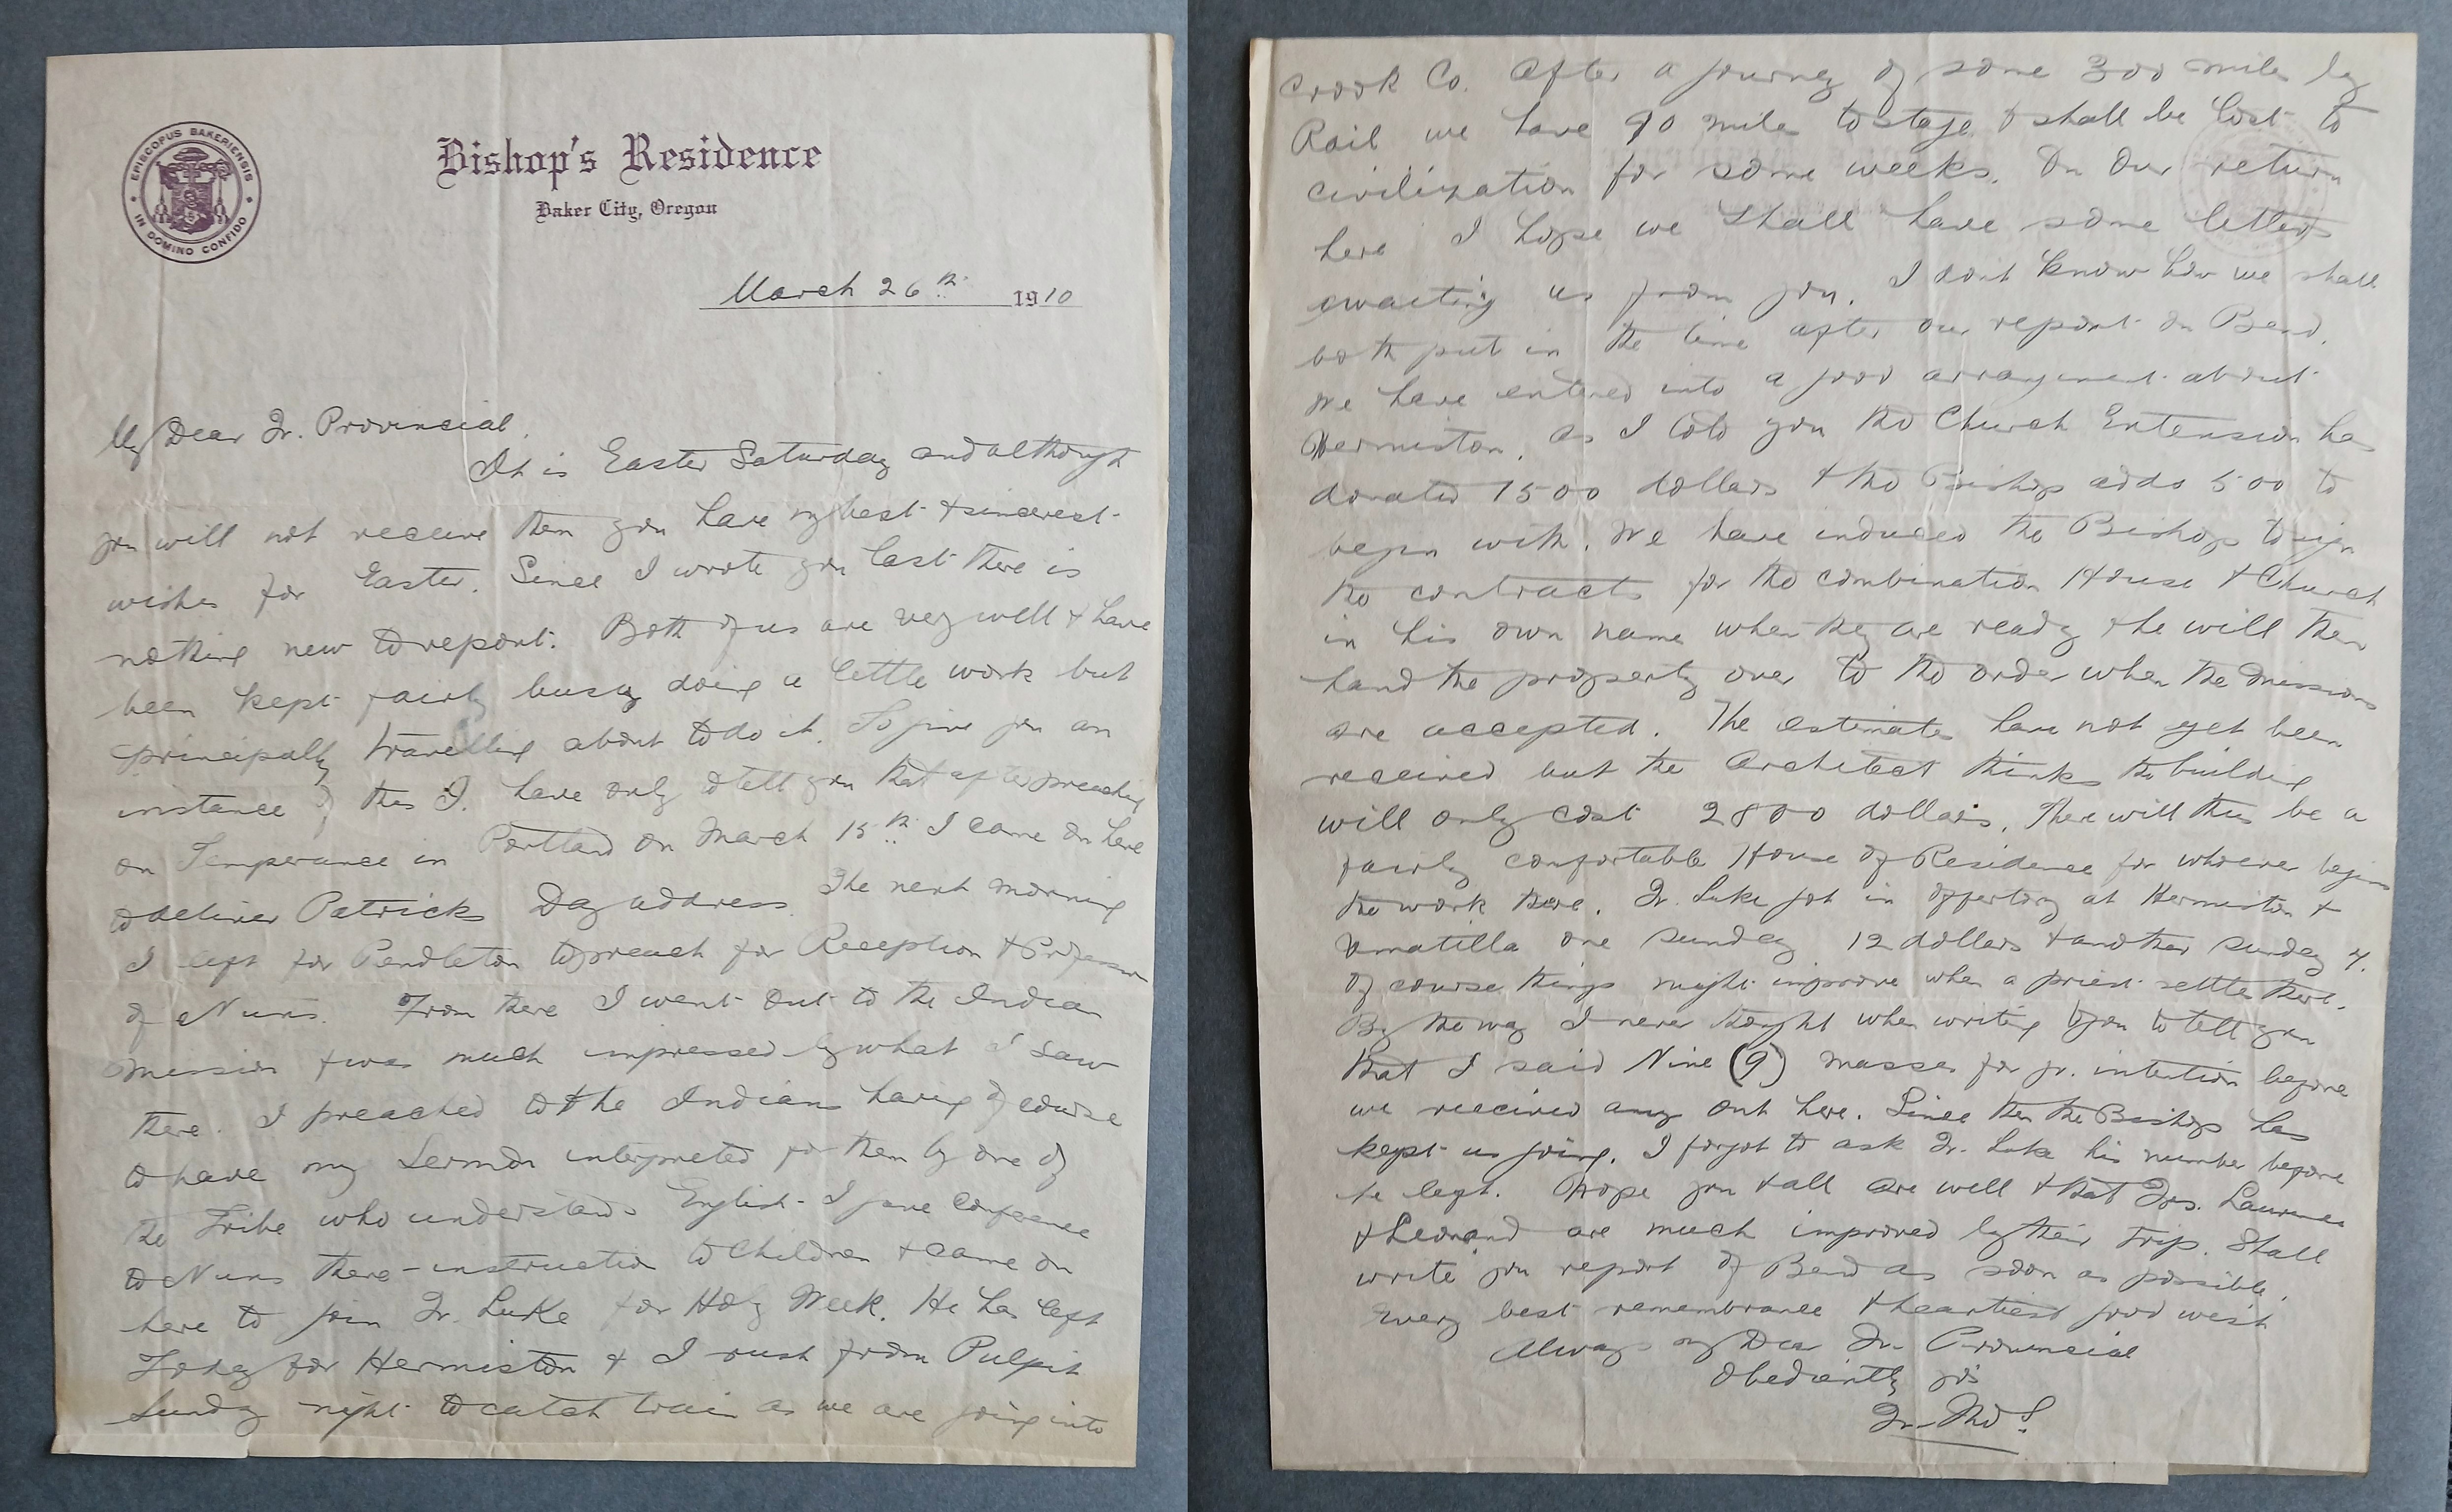 EPISCOPUS BAKERIENSIS
IN DOMINO CONFIDO
Bishop's Residence
Baker City, Oregon
March 26th 1910
My Dear Fr. Provincial,
It is Easter Saturday and although
you will not receive them you have my best & sincerest
wishes for Easter. Since I wrote you last there is
nothing new to report. Both of us are very well & have
been kept fairly busy doing a little work but
principally travelling about to do it. To give you an
instance of this I have only to tell you that after preaching
on Temperance in Portland on March 15th I came on here
to deliver Patricks Day address. The next morning
I left for Pendleton to preach for Reception & Profession
of Nuns. From there I went out to the Indian
Mission & was much impressed by what I saw
there. I preached to the Indians having of course
to have my Sermon interpreted for them by one of
the Tribe who understands English. I gave conference
to Nuns there - instruction to Children & came on
here to join Fr. Luke for Holy Week. He has left
Today for Hermiston & I rush from Pulpit
Sunday night to catch train as we are going into
Crook Co. After a journey of some 300 miles by
Rail we have 90 miles to stage & shall be lost to
civilization for some weeks. On our return
here I hope we shall have some letters
awaiting us from you. I don't know how we shall
both put in the time after our report on Bend.
We have entered into a good arrangement about
Hermiston. As I told you the Church Extension has
donated 1500 dollars & the Bishop adds 500 to
begin with. We have induced the Bishop to sign
the contracts for the combination House & Church
in his own name when they are ready & he will then
hand the property over to the order when the missions
are accepted. The estimates have not yet been
received but the Architect thinks the building
will only cost 2800 dollars. There will thus be a
fairly comfortable House of Residence for whoever begins
the work there. Fr. Luke got in offertory at Hermiston &
Umatilla one Sunday 12 dollars & another Sunday 4.
Of course things might improve when a priest settles there.
By the way I never thought when writing to you to tell you
that I said Nine (9) masses for yr. intention before
we received any out here. Since then the Bishop has
kept us going. I forgot to ask Fr. Luke his number before
he left. Hope you & all are well & that Frs. Laurence
& Leonard are much improved by their trip. Shall
write you report of Bend as soon as possible.
Every best remembrance & heartiest good wish
Always my Dear Fr. Provincial
Obediently yrs
Fr. Thos.